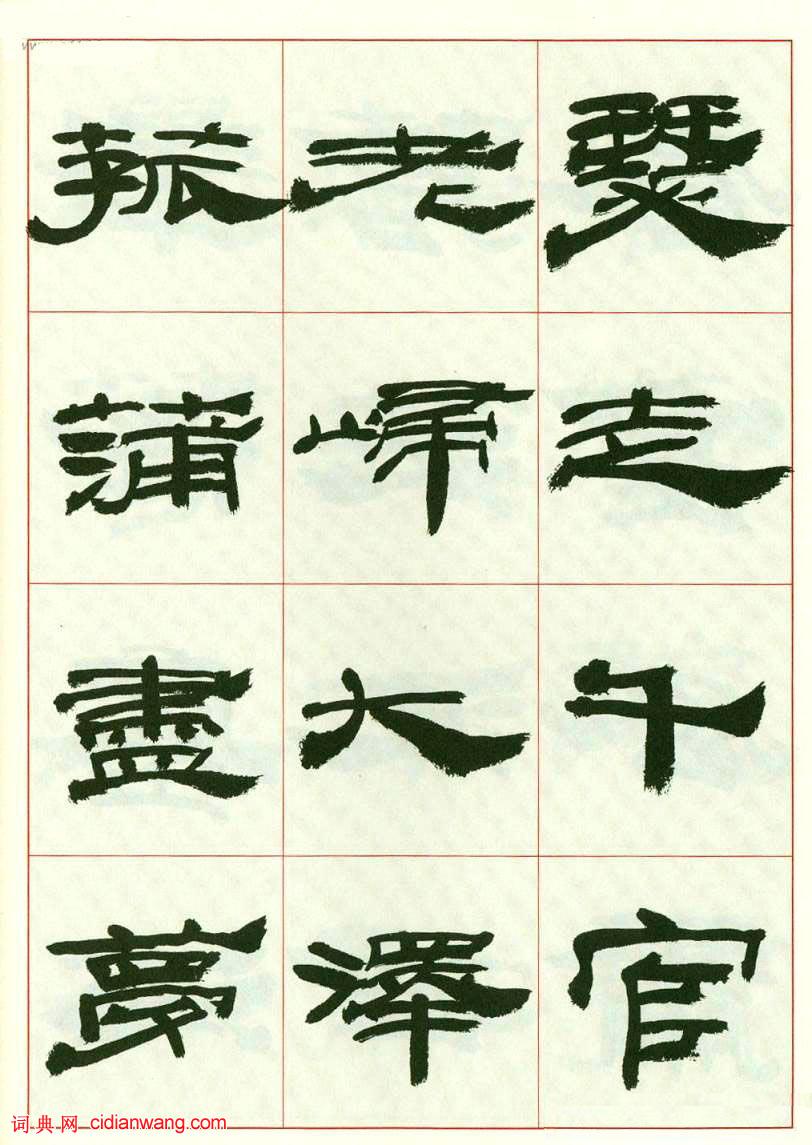 瑟走千官
老歸大澤
菰蒲盡夢
词典网 cidianwang.com